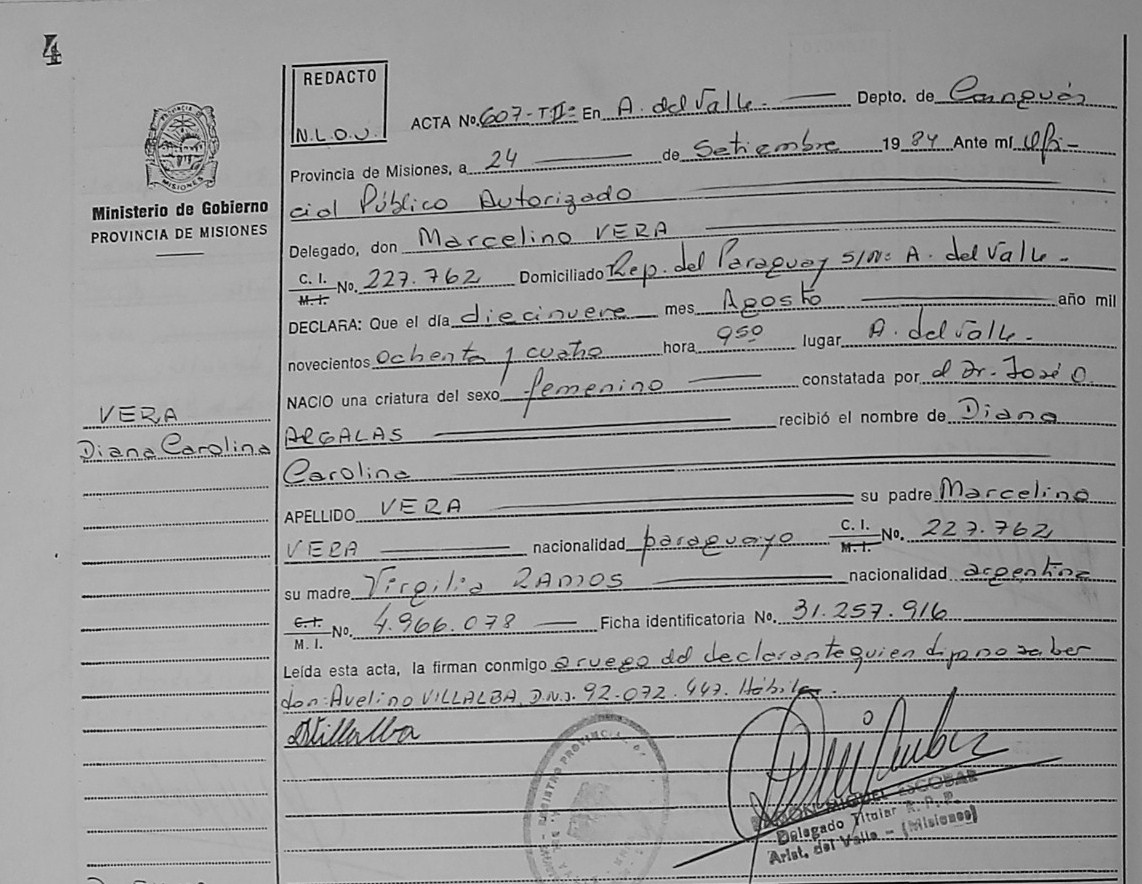 4
REDACTO
N.L.O.V.
ACTA No. 607-T:II= En A. del Valle. Depto. de Cainguás
Provincia de Misiones, a 24 de Setiembre 1984 Ante mí Ofi-
cial Público Autorizado
MISIONES
Ministerio de Gobierno
PROVINCIA DE MISIONES
Delegado, don Marcelino VERA
C. I.
M. I.
No. 227.762 Domiciliado Rep. del Paraguay S/N: A. del Valle.
DECLARA: Que el día diecinueve mes Agosto año mil
novecientos ochenta y cuatro hora 9:50 lugar A. del Valle.
NACIO una criatura del sexo femenino constatada por el Dr. José O.
VERA
Diana Carolina
ARGALAS recibió el nombre de Diana
Carolina
APELLIDO VERA su padre Marcelino
VERA nacionalidad paraguayo C. I. M. I. No. 227.762
su madre Virgilia RAMOS nacionalidad argentina
C. I.
M. I.
No. 4.966.078 Ficha identificatoria No. 31.257.916
Leída esta acta, la firman conmigo a ruego del declarante quien dijo no saber
don: Avelino VILLALBA, D.N.I. 92.072.447. Hábil.
AVillalba
RAMON MIGUEL ESCOBAR
Delegado Titular R. P. P.
Arist. del Valle - (Misiones)